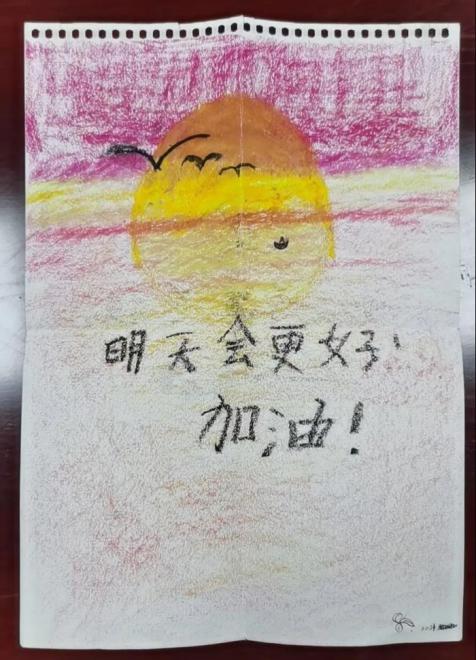 明天会更好!
加油!